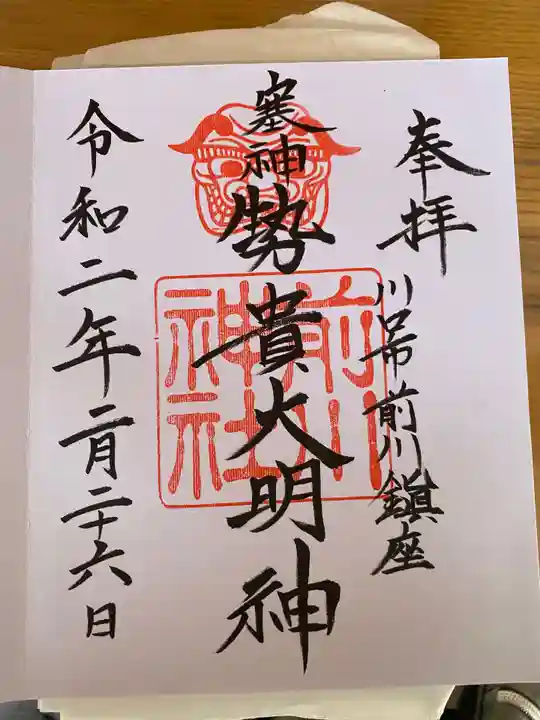 奉拝
川口市前川鎮座
塞神
勢貴大明神
前川
神社
令和二年二月二十六日